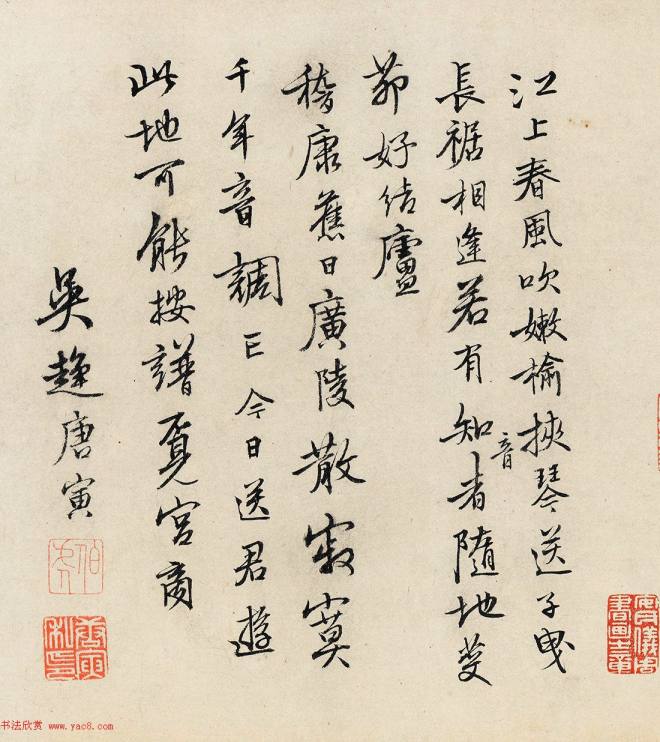 江上春風吹嫩榆挾琴送子曳
長裾相逢若有知音者隨地芟
茆好結廬
嵇康舊日廣陵散寂寞
千年音調亡今日送君遊
此地可能按譜覓宮商
吳趨唐寅
伯虎
唐寅私印
书法欣赏 www.yac8.com